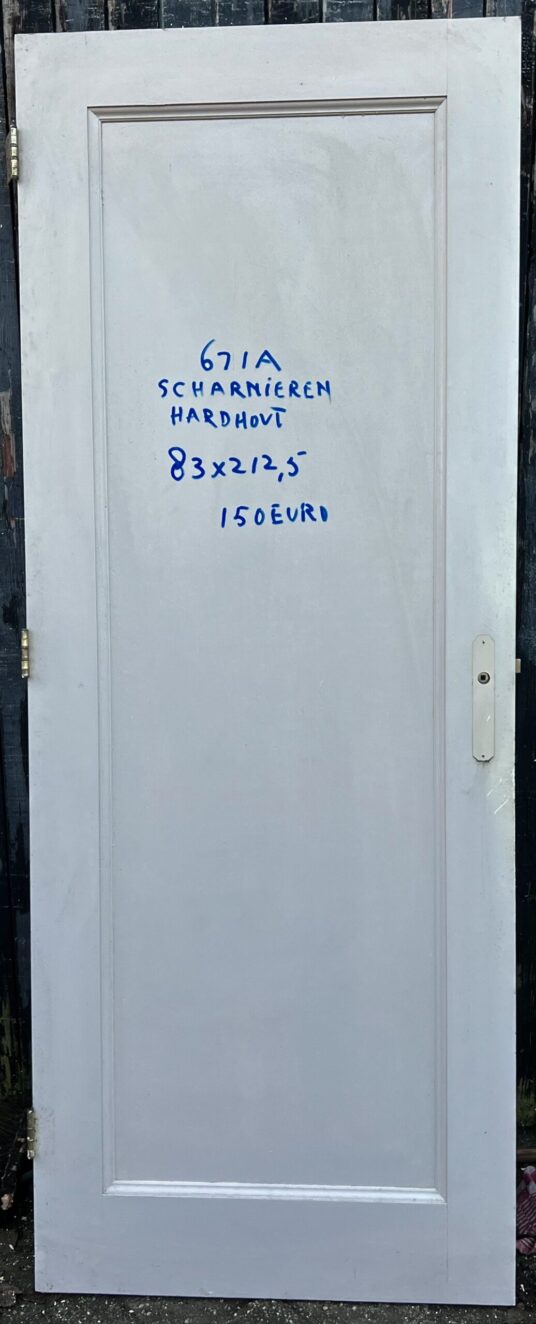 671A
SCHARNIEREN
HARDHOUT
83x212,5
150EURO